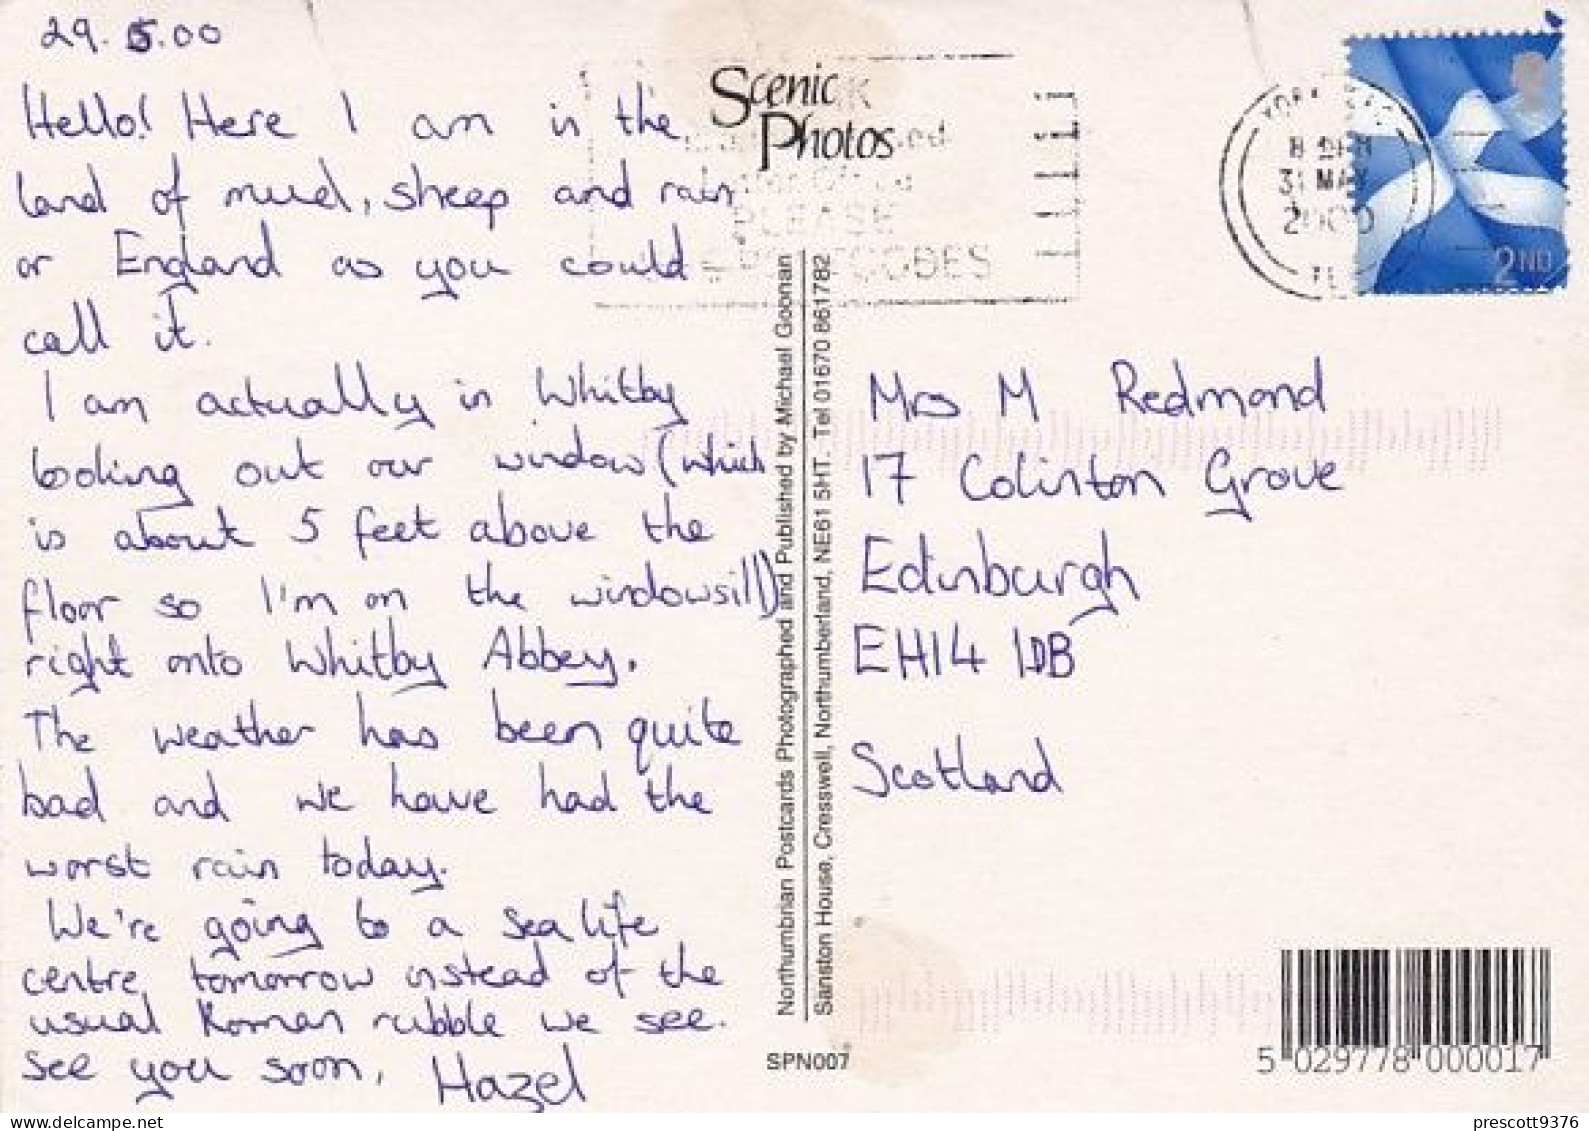 29.5.00
Hello! Here I am in the
land of mud, sheep and rain
or England as you could
call it.
I am actually in Whitby
looking out our window (which
is about 5 feet above the
floor so I'm on the windowsill)
right onto Whitby Abbey.
The weather has been quite
bad and we have had the
worst rain today.
We're going to a sea life
centre tomorrow instead of the
usual Roman rubble we see.
See you soon, Hazel
Scenic
Photos
PLEASE
CODES
31 MAY
2000
2ND
Mrs M Redmond
17 Colinton Grove
Edinburgh
EH14 1DB
Scotland
Northumbrian Postcards Photographed and Published by Michael Goonan
Sanston House, Cresswell, Northumberland, NE61 5HT. Tel 01670 861782
SPN007
5 029778 000017
prescott9376